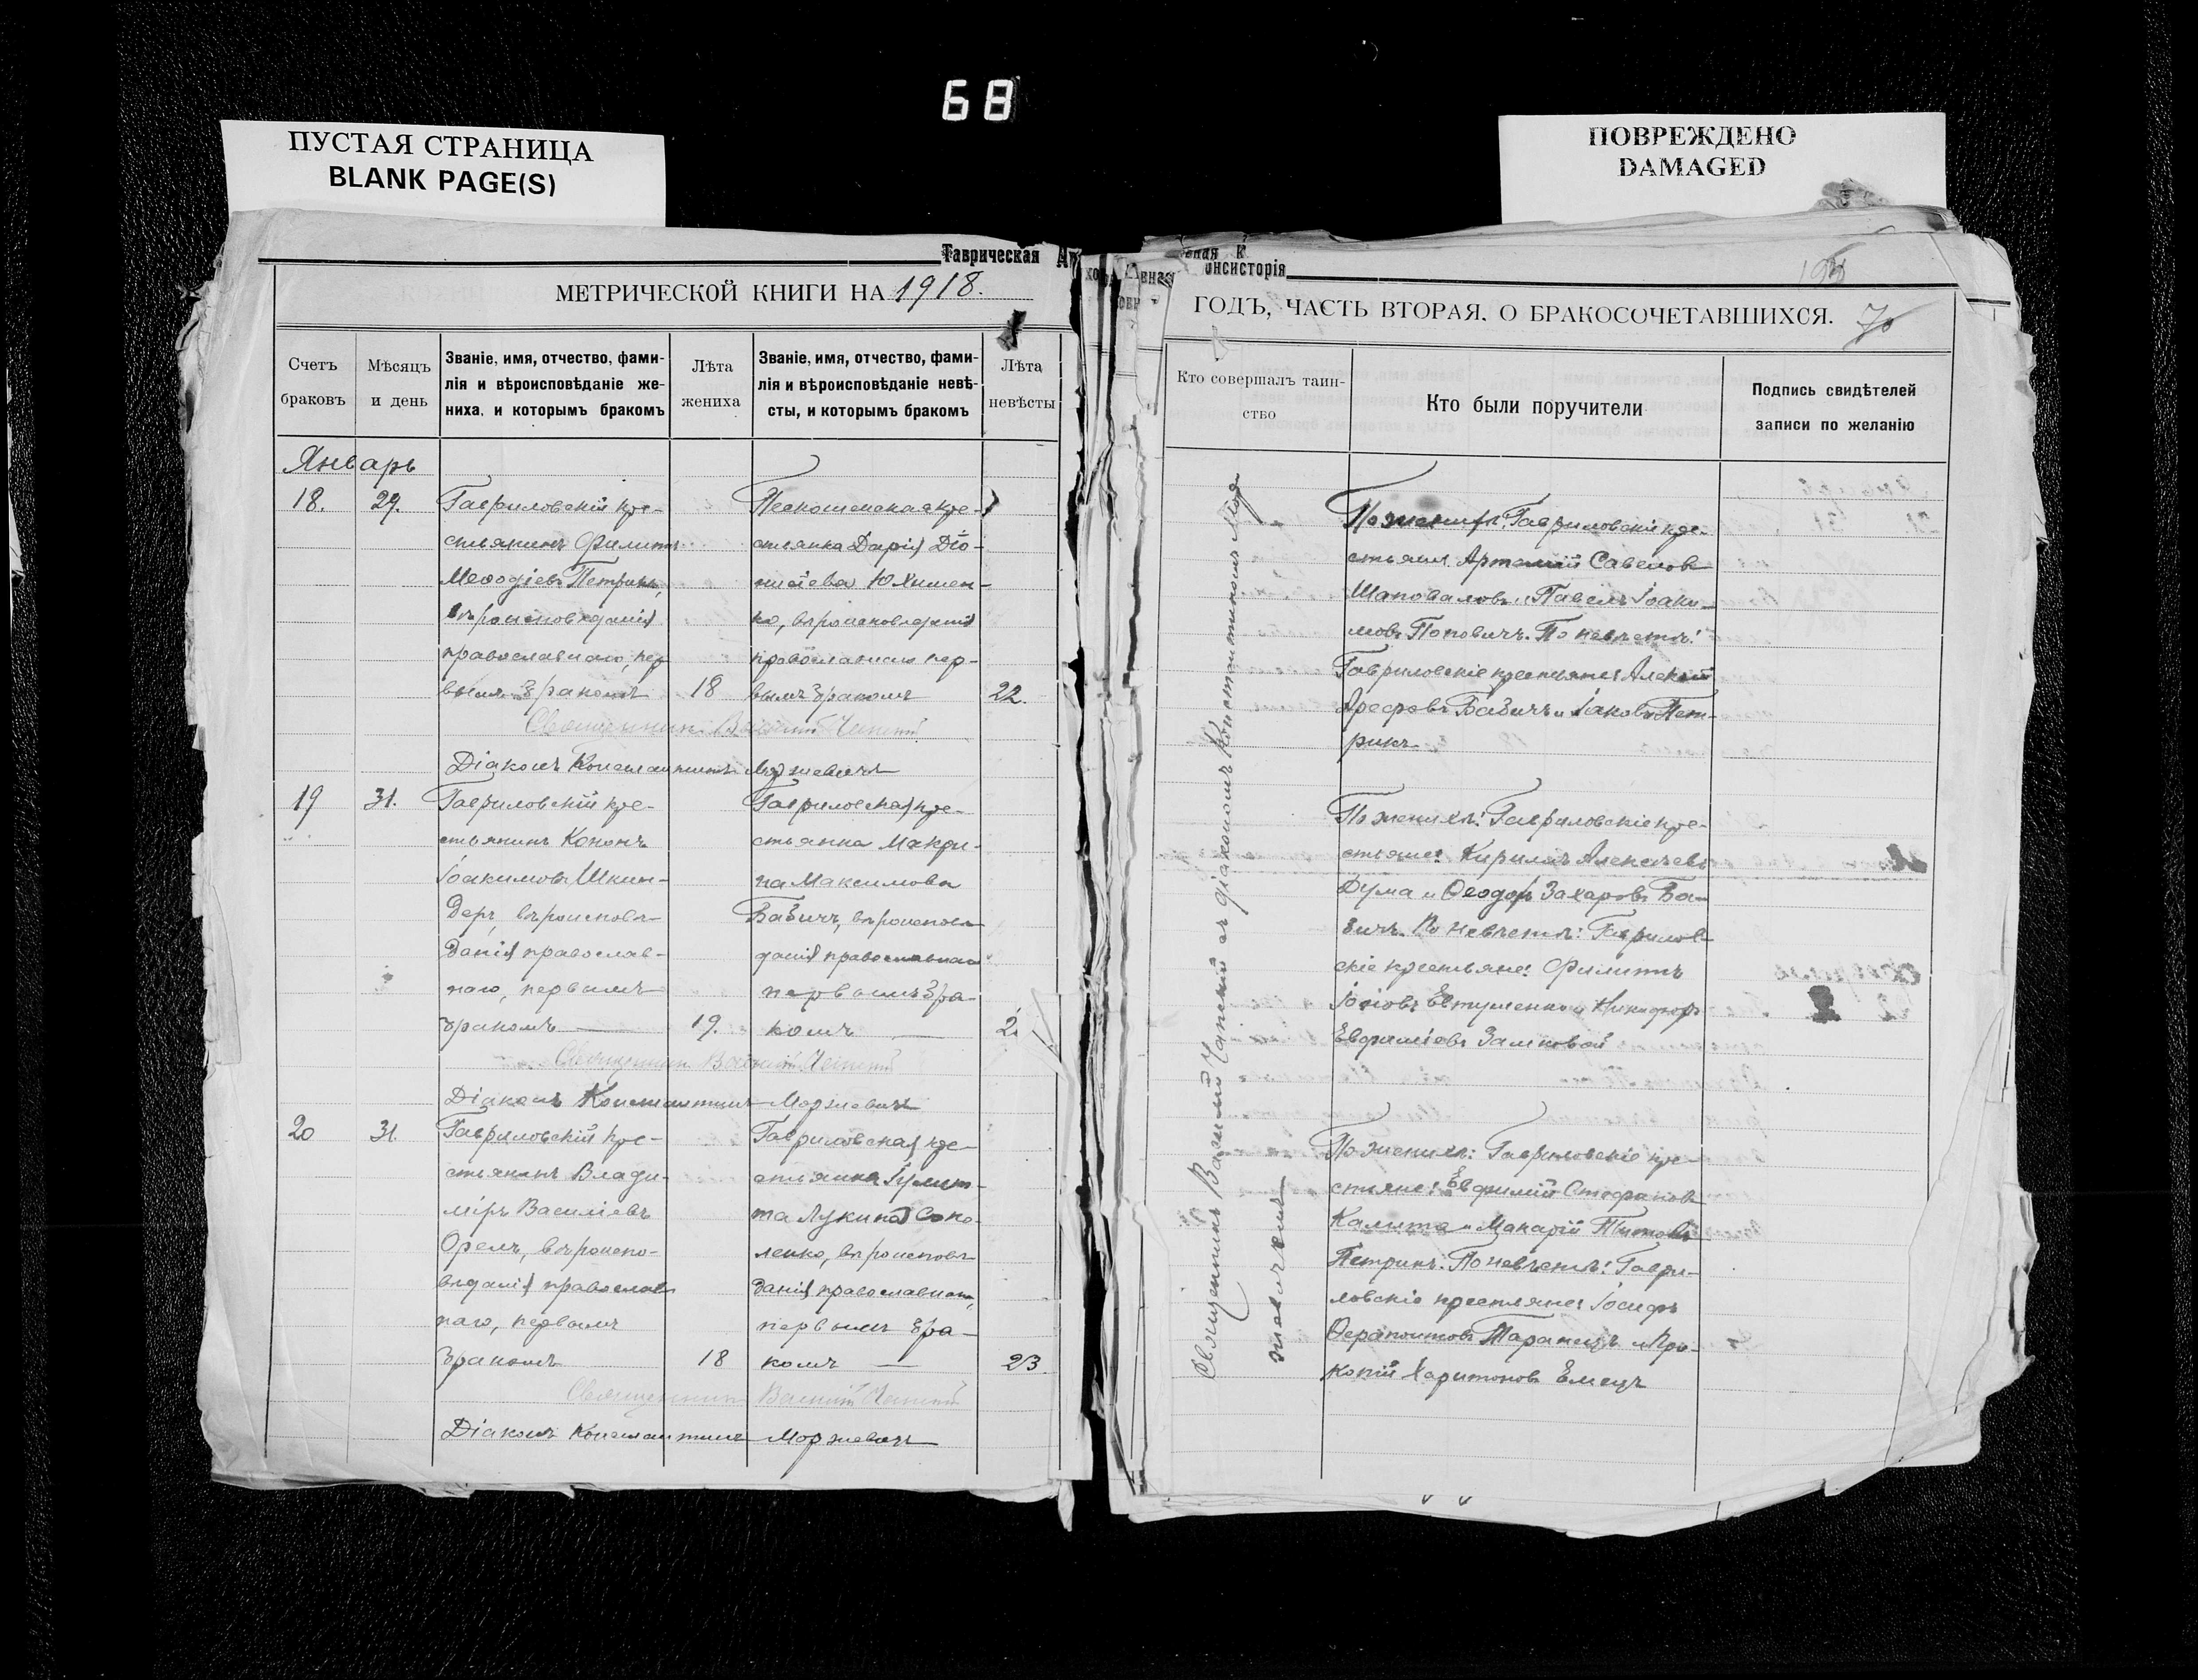 68
ПУСТАЯ СТРАНИЦА
BLANK PAGE(S)
ПОВРЕЖДЕНО
DAMAGED
Таврическая
МЕТРИЧЕСКОЙ КНИГИ НА 1918.
Счетъ браковъ
Мѣсяцъ и день
Званіе, имя, отчество, фами-
лія и вѣроисповѣданіе же-
ниха, и которымъ бракомъ
Лѣта жениха
Званіе, имя, отчество, фами-
лія и вѣроисповѣданіе невѣ-
сты, и которымъ бракомъ
Лѣта невѣсты
Январь
18. 29.
Гавриловскій кре-
стьянинъ Филиппъ
Меѳодіевъ Петрикъ,
вѣроисповѣданія
православнаго, пер
вымъ бракомъ
18
крестьянка Дарія Діо-
нисіева Юхимен-
ко, вѣроисповѣданія
православнаго пер-
вымъ бракомъ
22.
Священникъ Василій
Діаконъ Константинъ Моржевичъ
19 31.
Гавриловскій кре-
стьянинъ Кононъ
Іоакимовъ Шкин-
деръ, вѣроисповѣ-
данія православ-
наго, первымъ
бракомъ
19.
Гавриловская кре-
стьянка Макри-
на Максимова
Бабичъ, вѣроисповѣ
данія православнаго
первымъ бра-
комъ
Священникъ Василій
Діаконъ Константинъ Моржевичъ
20 31.
Гавриловскій кре-
стьянинъ Влади-
міръ Василіевъ
Орелъ, вѣроиспо-
вѣданія православ
наго, первымъ
бракомъ
18
Гавриловская кре-
стьянка Іулит-
та Лукина Соко-
ленко, вѣроисповѣ
данія православнаго,
первымъ бра-
комъ
23
Священникъ Василій
Діаконъ Константинъ Моржевичъ
онсисторія
70
ГОДЪ, ЧАСТЬ ВТОРАЯ, О БРАКОСОЧЕТАВШИХСЯ.
Кто совершалъ таин-
ство
Кто были поручители
Подпись свидѣтелей
записи по желанію
Священникъ Василій съ діакономъ Константиномъ Мор
жевичемъ
По женихѣ: Гавриловскіе кре-
стьяне Артемій Савеловъ
Шаповаловъ и Павелъ Іоаки-
мовъ Поповичъ. По невѣстѣ:
Гавриловскіе крестьяне: Алексій
Ареѳовъ Бабичъ и Іаковъ Пет-
рикъ
По женихѣ: Гавриловскіе кре-
стьяне: Кириллъ Алексѣевъ
Дума и Ѳеодоръ Захаровъ Ба-
бичъ. По невѣстѣ: Гаврилов
скіе крестьяне: Филиппъ
Евтушенко и Никифоръ
Евфиміевъ
По женихѣ: Гавриловскіе кре-
стьяне: Евфимій Стефановъ
Калита и Макарій Титовъ
Петрикъ. По невѣстѣ: Гаври-
ловскіе крестьяне: Іосифъ
Ѳерапонтовъ Таранецъ и Про-
копій Харитоновъ Емецъ